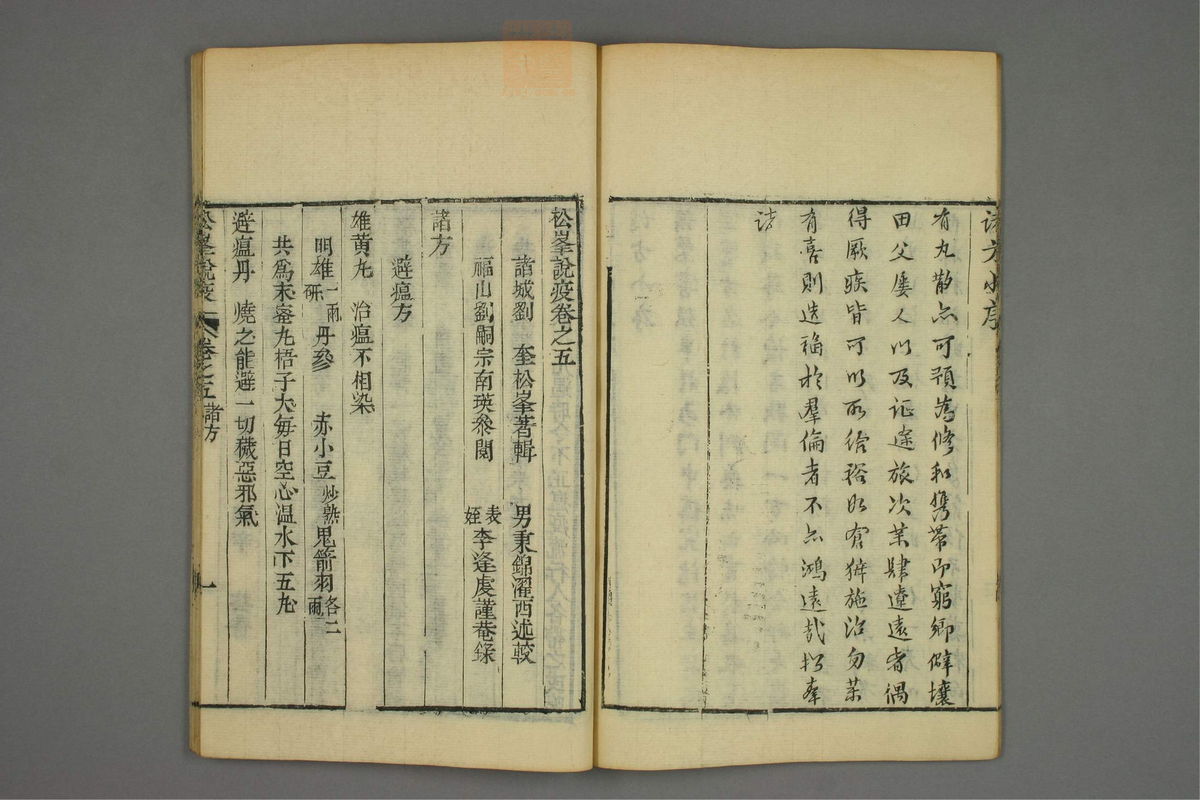 諸方小序
有丸散亦可預為修和攜帶即窮鄉僻壤
田父屢人以及証途旅次藥肆遼遠者偶
得厥疾皆可以取給裕如實獬施治勿藥
有喜則造福於羣倫者不亦鴻遠哉松峯
識
松峯說疫卷之五
諸城劉 奎松峯著輯 男秉錦濯西述較
福山劉嗣宗南瑛叅閱 表姪李逢虔謹菴錄
諸方
避瘟方
雄黃丸 治瘟不相染
明雄一兩研 丹參 赤小豆炒熟 鬼箭羽各二兩
共為末蜜丸梧子大每日空心溫水下五丸
避瘟丹 燒之能避一切穢惡邪氣
松峯說疫 卷之五諸方 一